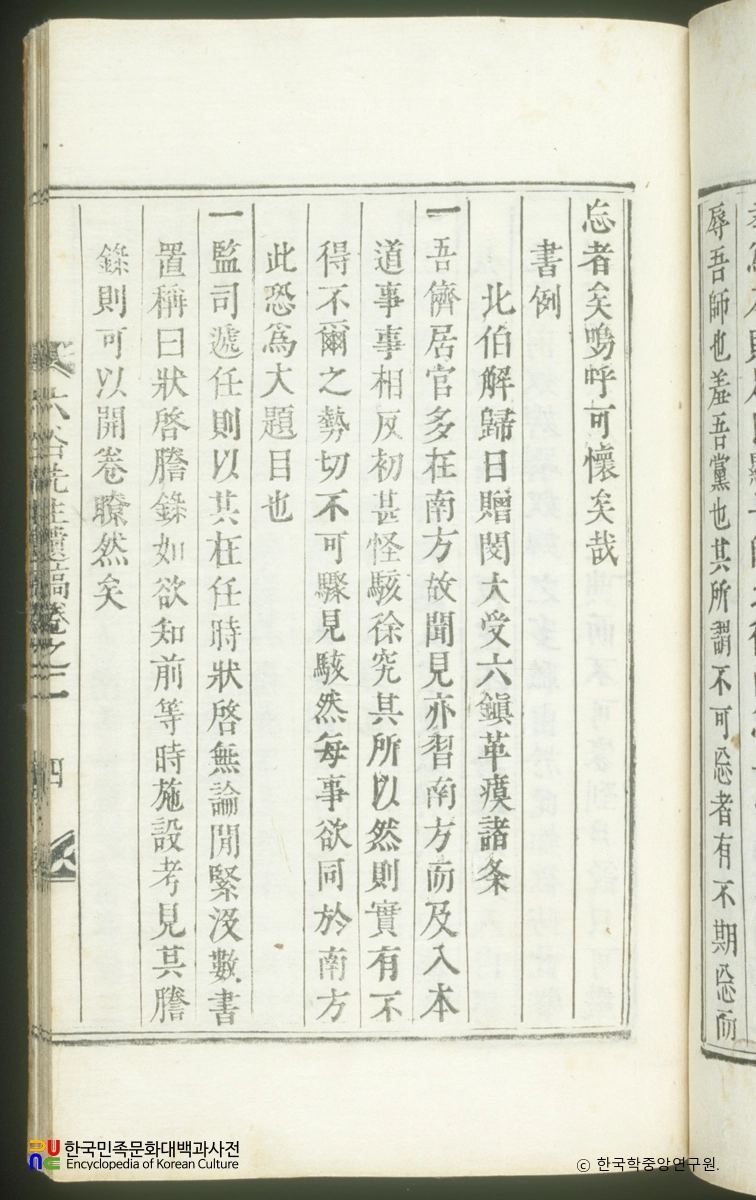 忘者矣嗚呼可懷矣哉
書例
北伯解歸日贈閔大受六鎭革瘼諸条
一吾儕居官多在南方故聞見亦習南方而及入本
道事事相反初甚怪駭徐究其所以然則實有不
得不爾之勢切不可驟見駭然每事欲同於南方
此恐爲大題目也
一監司遞任則以其在任時狀啓無論閒緊沒數書
置稱曰狀啓謄錄如欲知前等時施設考見其謄
錄則可以開卷瞭然矣
谷先生遺稿卷之二 四
辱吾師也羞吾黨也其所謂不可忘者有不期忘而
한국민족문화대백과사전
Encyclopedia of Korean Culture
ⓒ 한국학중앙연구원.